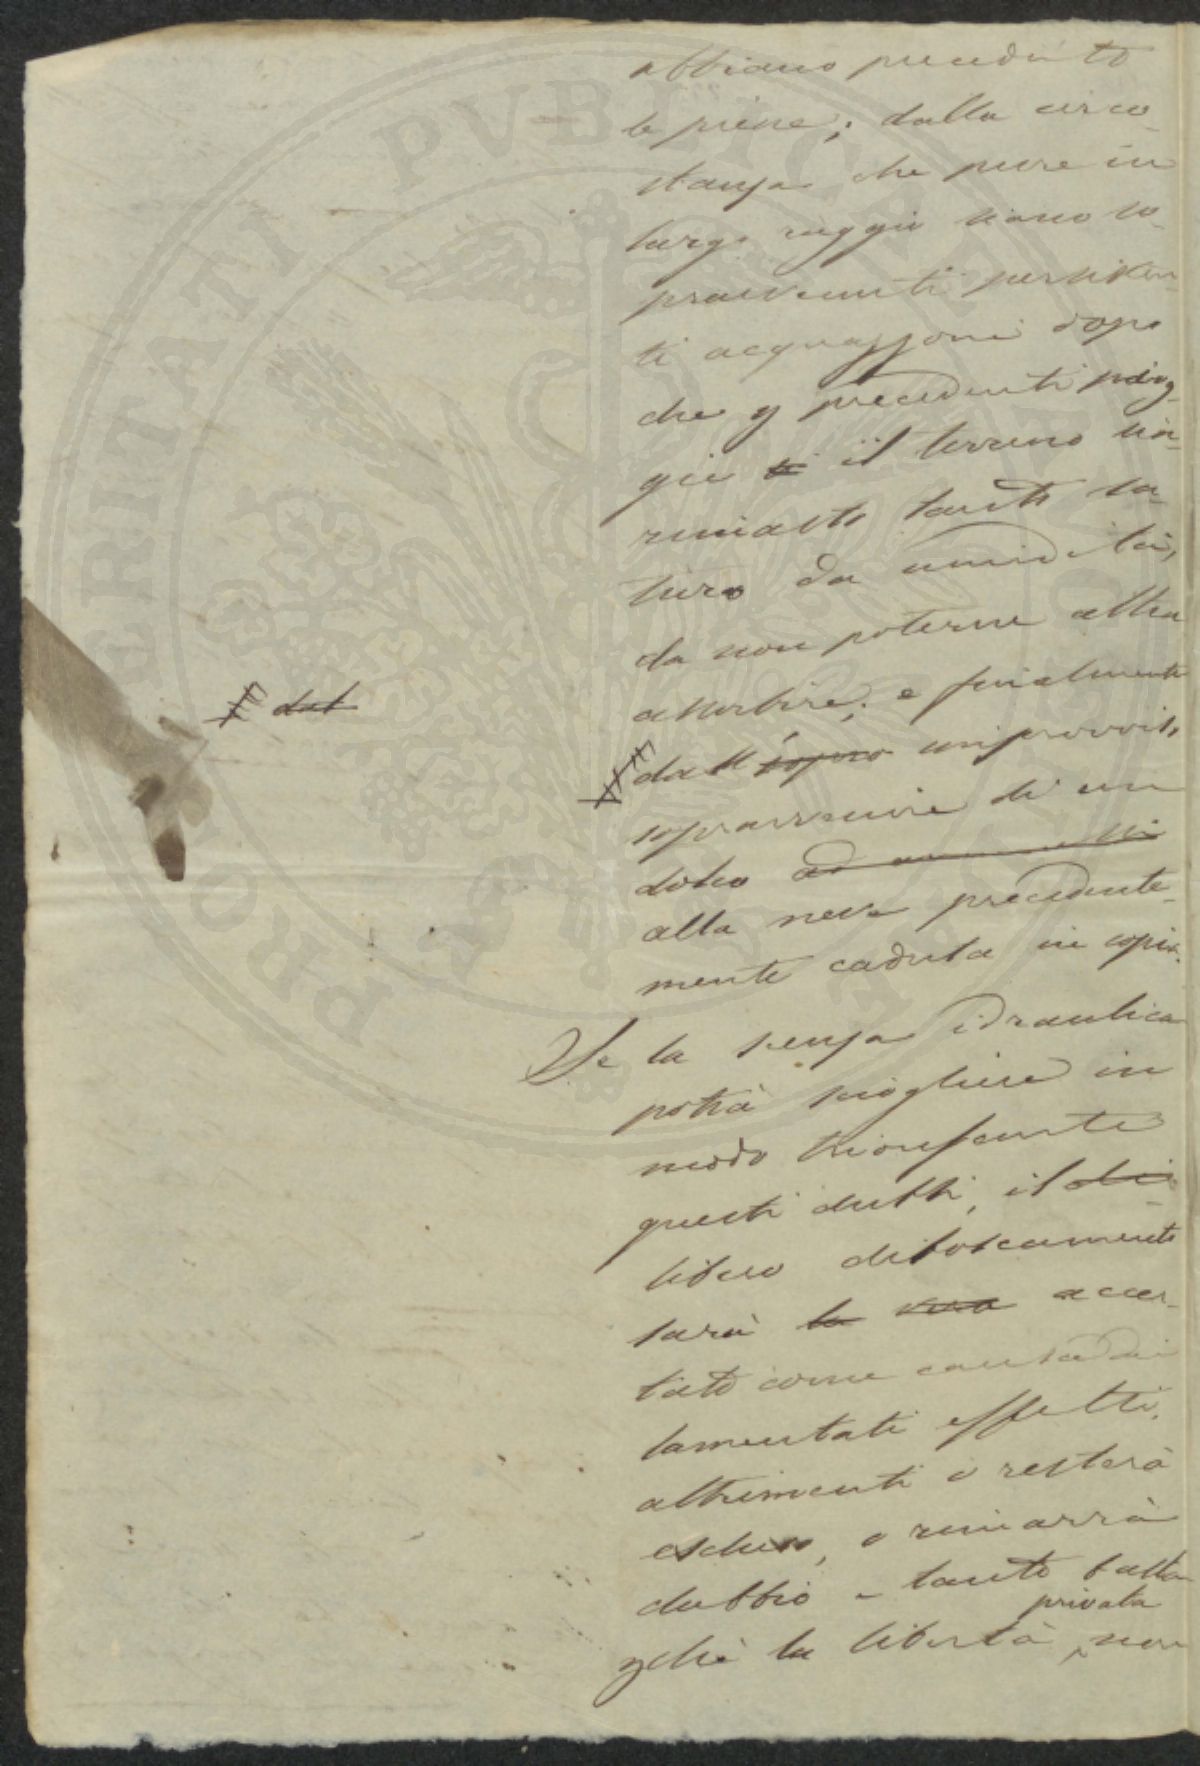 abbiano preceduto
le piene; dalla circo-
stanza che pure in
largo raggio siano so-
pravvenuti persisten-
ti acquazzoni dopo
che p precedenti piog-
gie si il terreno sia
rimasto tanto sa-
turo da umidità,
da non poterne altra
assorbire; e finalmente
# dal
# dall' sopra improvviso
sopravvenire di un
dolco ad
alla neve precedente-
mente caduta in copia.
Se la scienza idraulica
potrà sciogliere in
modo trionfante
questi dubbi, il di-
libero diboscamento
sarà la vera accer-
tato come causa dei
lamentati effetti,
altrimenti o resterà
escluso, o rimarrà
dubbio – tanto basta
pchè la libertà privata non